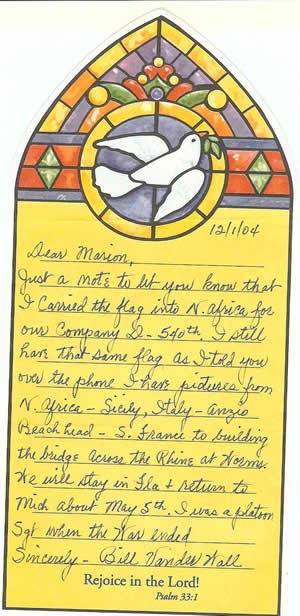 12/1/04
Dear Marion,
Just a note to let you know that
I Carried the flag into N. Africa for
our Company D - 540th. I still
have that same flag as I told you
over the phone I have pictures from
N. Africa - Sicily, Italy - Anzio
Beach head - S. France to building
the bridge across the Rhine at Worms.
We will stay in Fla + return to
Mich about May 5th. I was a platoon
Sgt when the War ended
Sincerely - Bill Vander Wall
Rejoice in the Lord!
Psalm 33:1